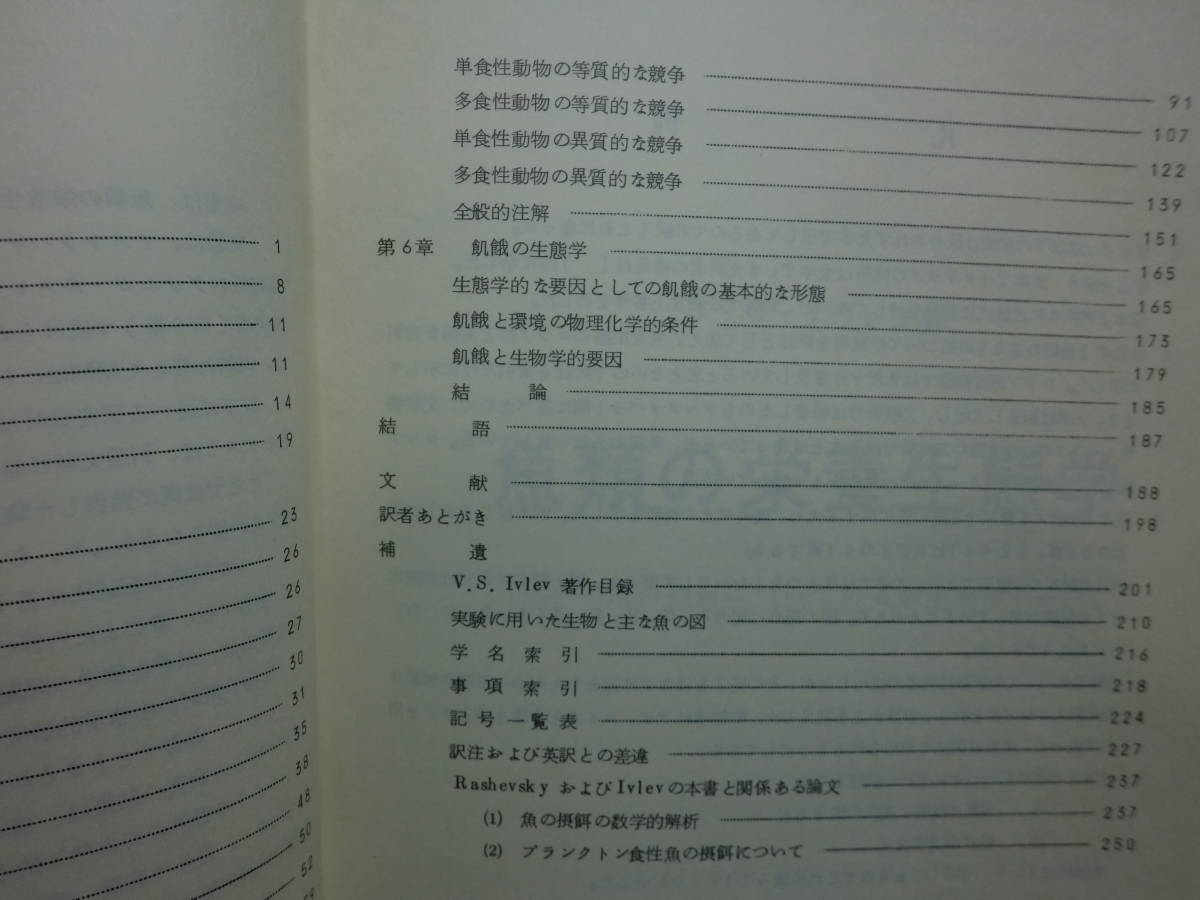 1
8
11
11
14
19
23
26
26
27
30
31
35
38
48
50
52
単食性動物の等質的な競争 91
多食性動物の等質的な競争 107
単食性動物の異質的な競争 122
多食性動物の異質的な競争 139
全般的注解 151
第6章 飢餓の生態学 165
生態学的な要因としての飢餓の基本的な形態 165
飢餓と環境の物理化学的条件 173
飢餓と生物学的要因 179
結論 185
結語 187
文献 188
訳者あとがき 198
補遺
V.S. Ivlev 著作目録 201
実験に用いた生物と主な魚の図 210
学名索引 216
事項索引 218
記号一覧表 224
訳注および英訳との差違 227
Rashevsky およびIvlevの本書と関係ある論文 237
(1) 魚の摂餌の数学的解析 237
(2) プランクトン食性魚の摂餌について 250